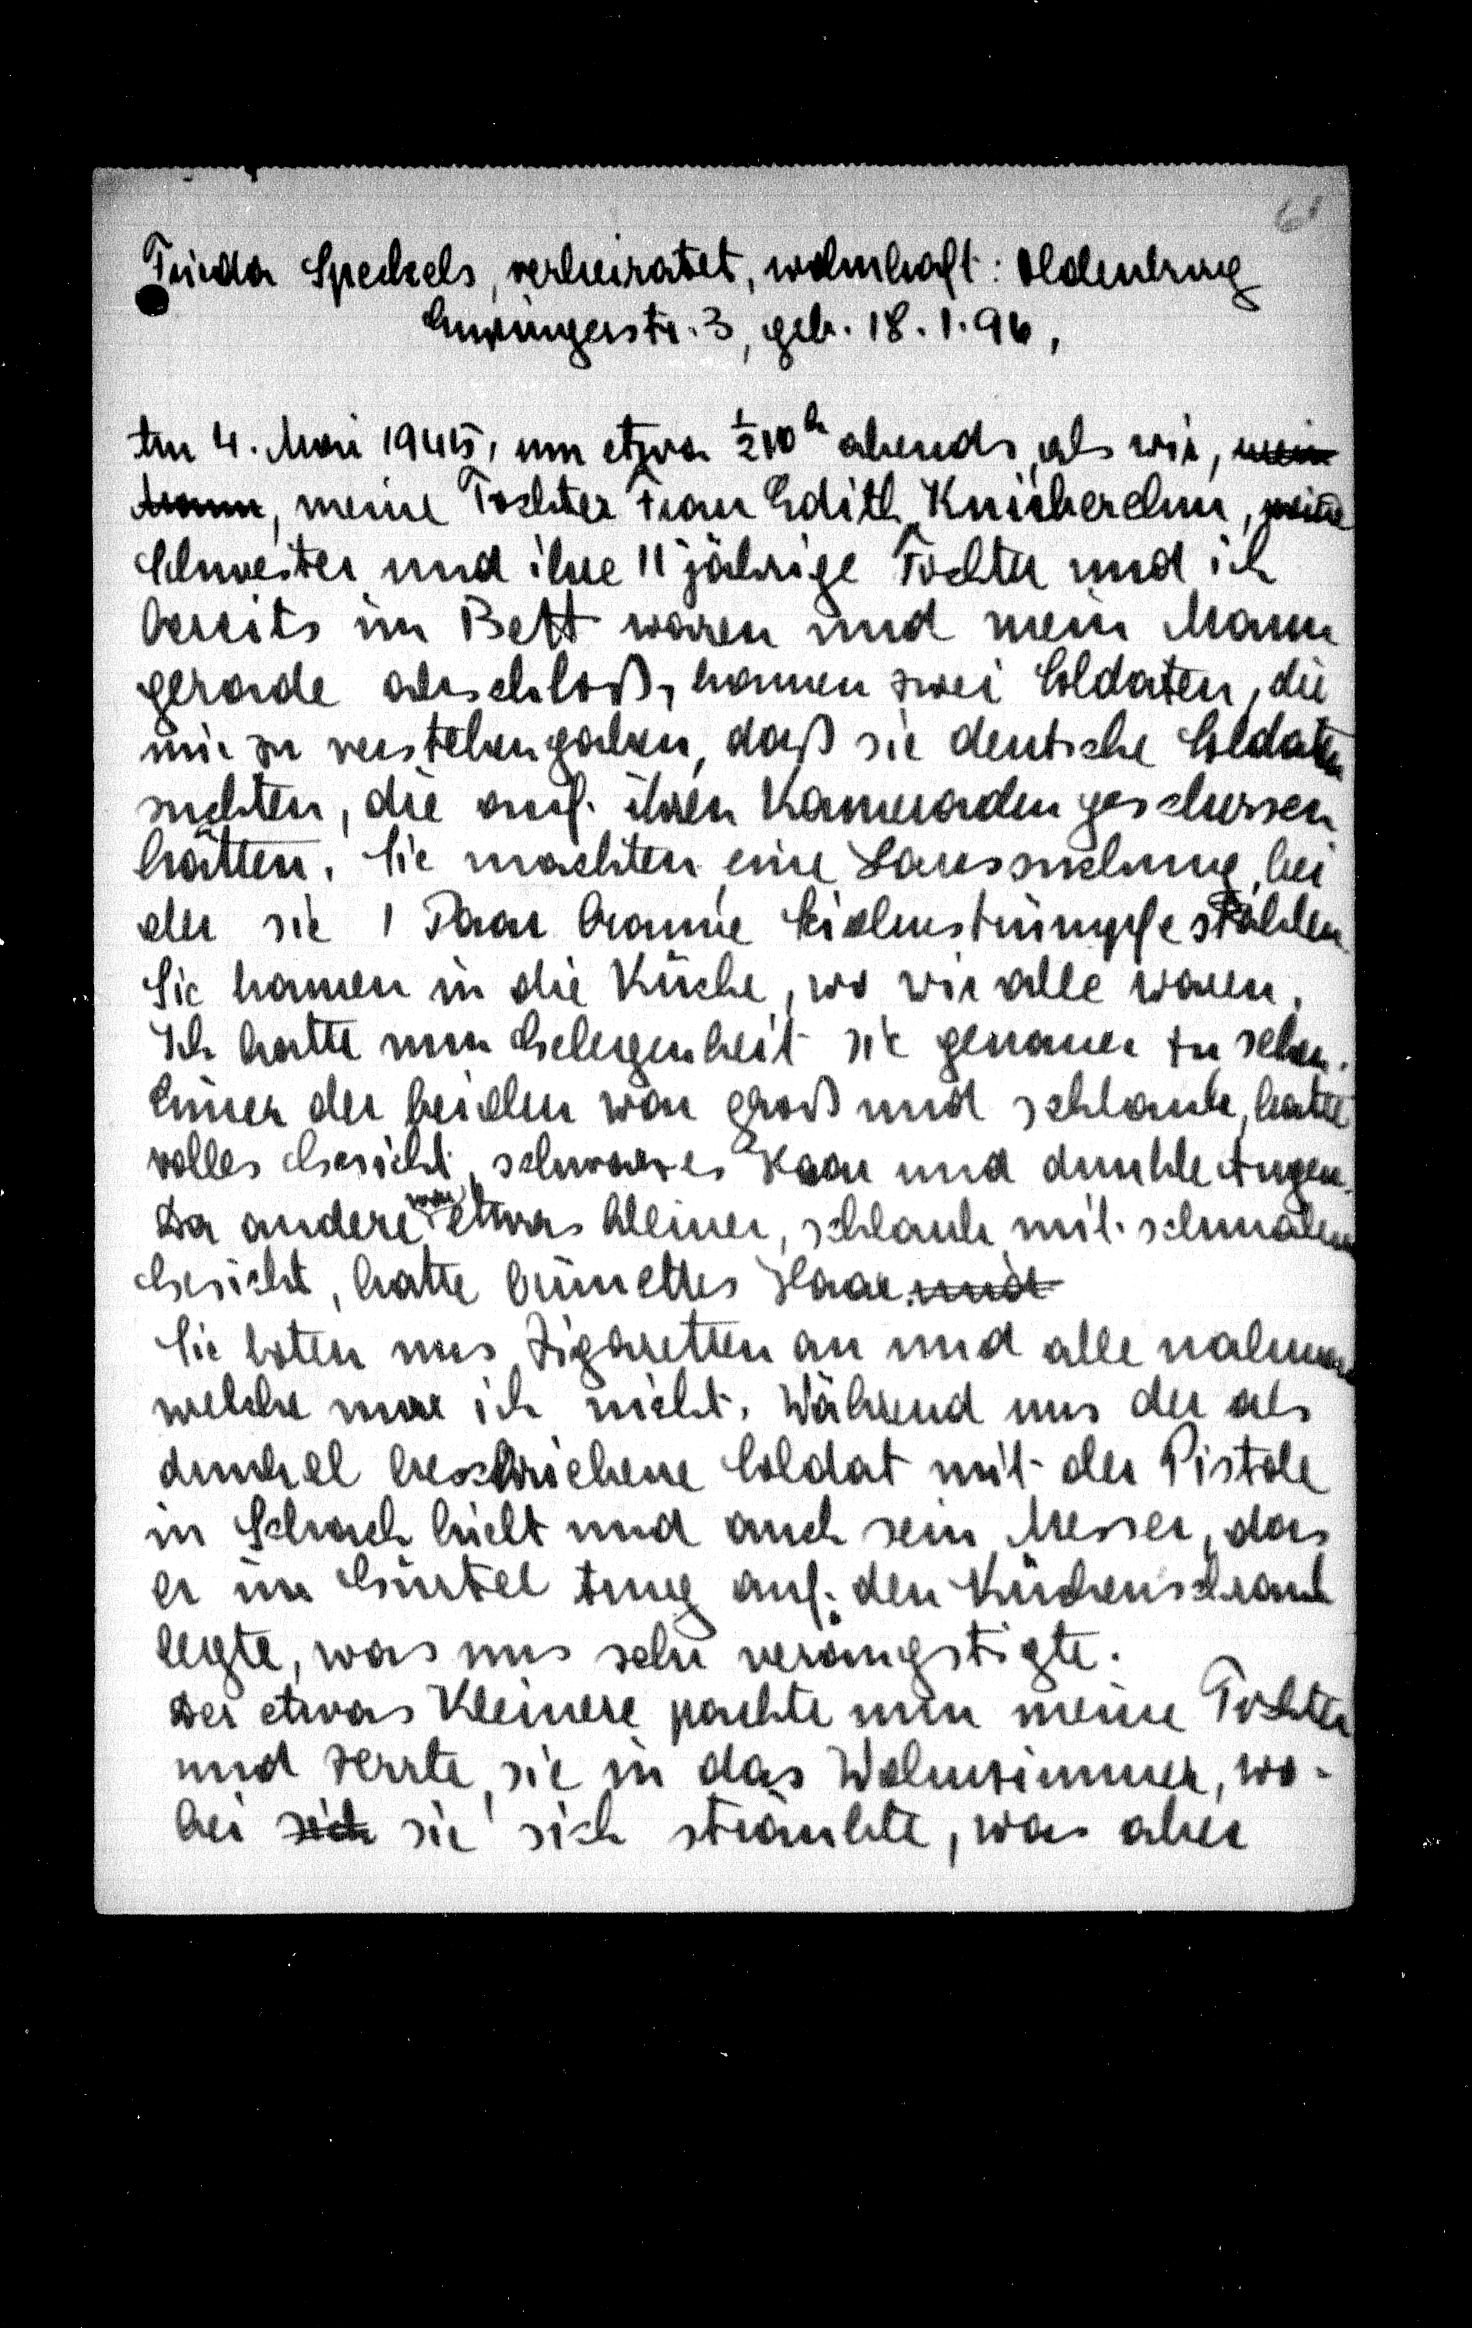 Frieda Speckels, verheiratet, wohnhaft: Oldenburg
str. 3, geb. 18.1.96,
Am 4. Mai 1945, um etwa ½10h abends, als wir, mein
Mann, meine Tochter Frau Edith, meine
Schwester und ihre 11 jährige Tochter und ich
bereits im Bett waren und mein Mann
gerade abschloß, kamen zwei Soldaten, die
mir zu verstehen gaben, daß sie deutsche Soldaten
suchten, die auf ihren Kameraden geschossen
hätten. Sie machten eine Haussuchung, bei
der sie 1 Paar braune Seidenstrümpfe stahlen.
Sie kamen in die Küche, wo wir alle waren.
Ich hatte nun Gelegenheit sie genauer zu sehen.
Einer der beiden war groß und schlank, hatte
volles Gesicht, schwarzes Haar und dunkle Augen.
Der andere war etwas kleiner, schlank mit schmalem
Gesicht, hatte brünettes Haar. und
Sie boten uns Zigaretten an und alle nahmen
welche nur ich nicht. Während uns der als
dunkel beschriebene Soldat mit der Pistole
in Schach hielt und auch sein Messer, das
er im Gürtel trug auf den Küchenschrank
legte, was uns sehr verängstigte.
Der etwas Kleinere packte nun meine Tochter
und zerrte sie in das Wohnzimmer, wo-
bei sich sie sich sträubte, was aber